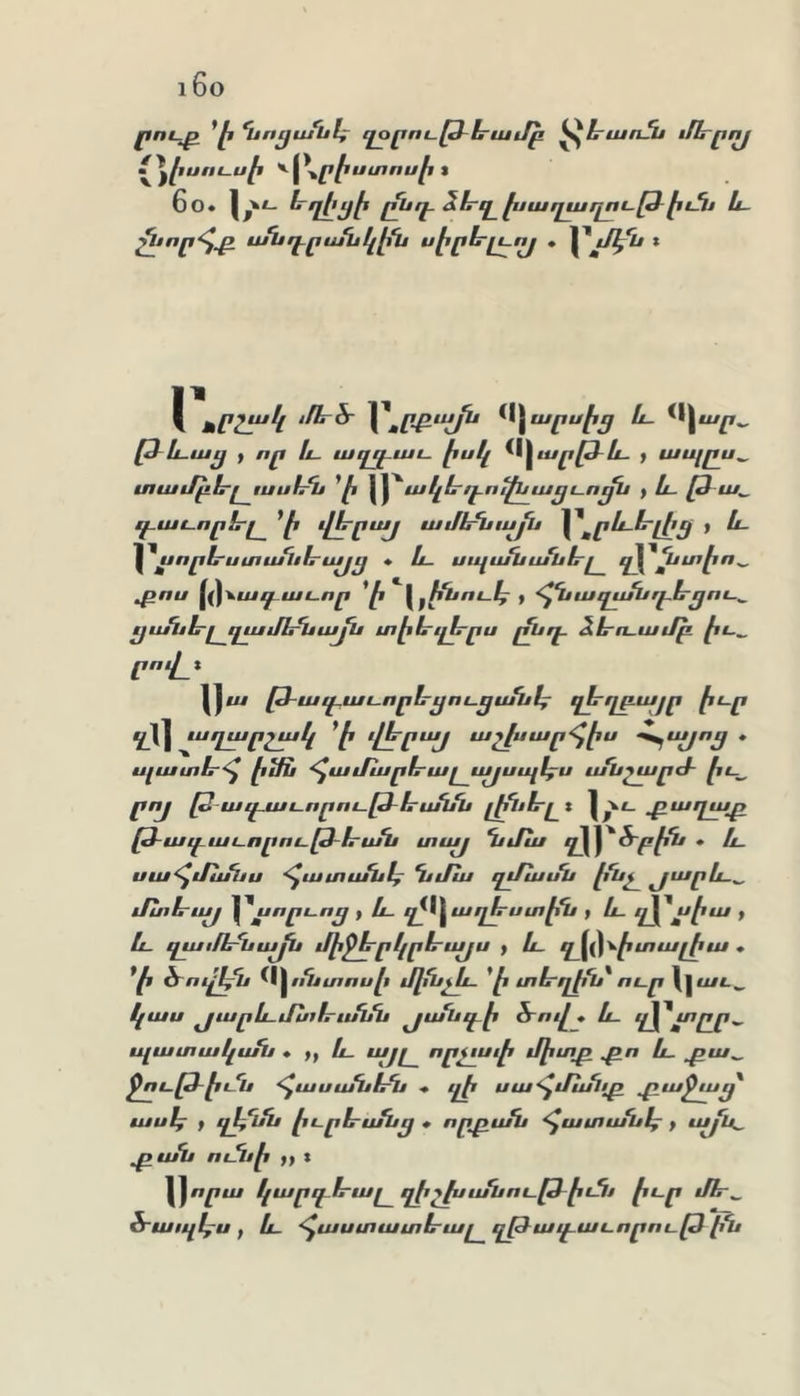 160
րուք 'ի նոցանէ զօրութեամբ Տեառն մերոյ
Յիսուսի Քրիստոսի ։
60. Եւ եղիցի ընդ ձեզ խաղաղութիւն և
շնորհք անդրանկին սիրելւոյ . Ամէն ։
Արշակ մեծ Արքայն Պարսից և Պար֊
թևաց , որ և ազգաւ իսկ Պարթև , ապըս֊
տամբել ասեն 'ի Մակեդոնացւոցն , և թա֊
գաւորել 'ի վերայ ամենայն Արևելից , և
Ասորեստանեայց . և սպանանել զԱնտիո֊
քոս Թագաւոր 'ի Նինուէ , հնազանդեցու֊
ցանել զամենայն տիեզերս ընդ ձեռամբ իւ֊
րով ։
Սա թագաւորեցուցանէ զեղբայր իւր
զՎաղարշակ 'ի վերայ աշխարհիս Հայոց .
պատեհ իմն համարեալ այսպէս անշարժ իւ֊
րոյ թագաւորութեանն լինել ։ Եւ քաղաք
թագաւորութեան տայ նմա զՄծբին . և
սահմանս հատանէ նմա զմասն ինչ յարև֊
մտեայ Ասորւոց , և զՊաղեստին , և զԱսիա ,
և զամենայն միջերկրեայս , և զԹիտալիա .
'ի ծովէն Պոնտոսի մինչև 'ի տեղին՝ ուր Կաւ֊
կաս յարևմտեանն յանգի ծով . և զԱտըր֊
պատական . ,, և այլ որչափ միտք քո և քա֊
ջութիւն հասանեն . զի սահմանք քաջաց՝
ասէ , զէնն իւրեանց . որքան հատանէ , այն֊
քան ունի ,, ։
Սորա կարգեալ զիշխանութիւն իւր մե֊
ծապէս , և հաստատեալ զթագաւորութին